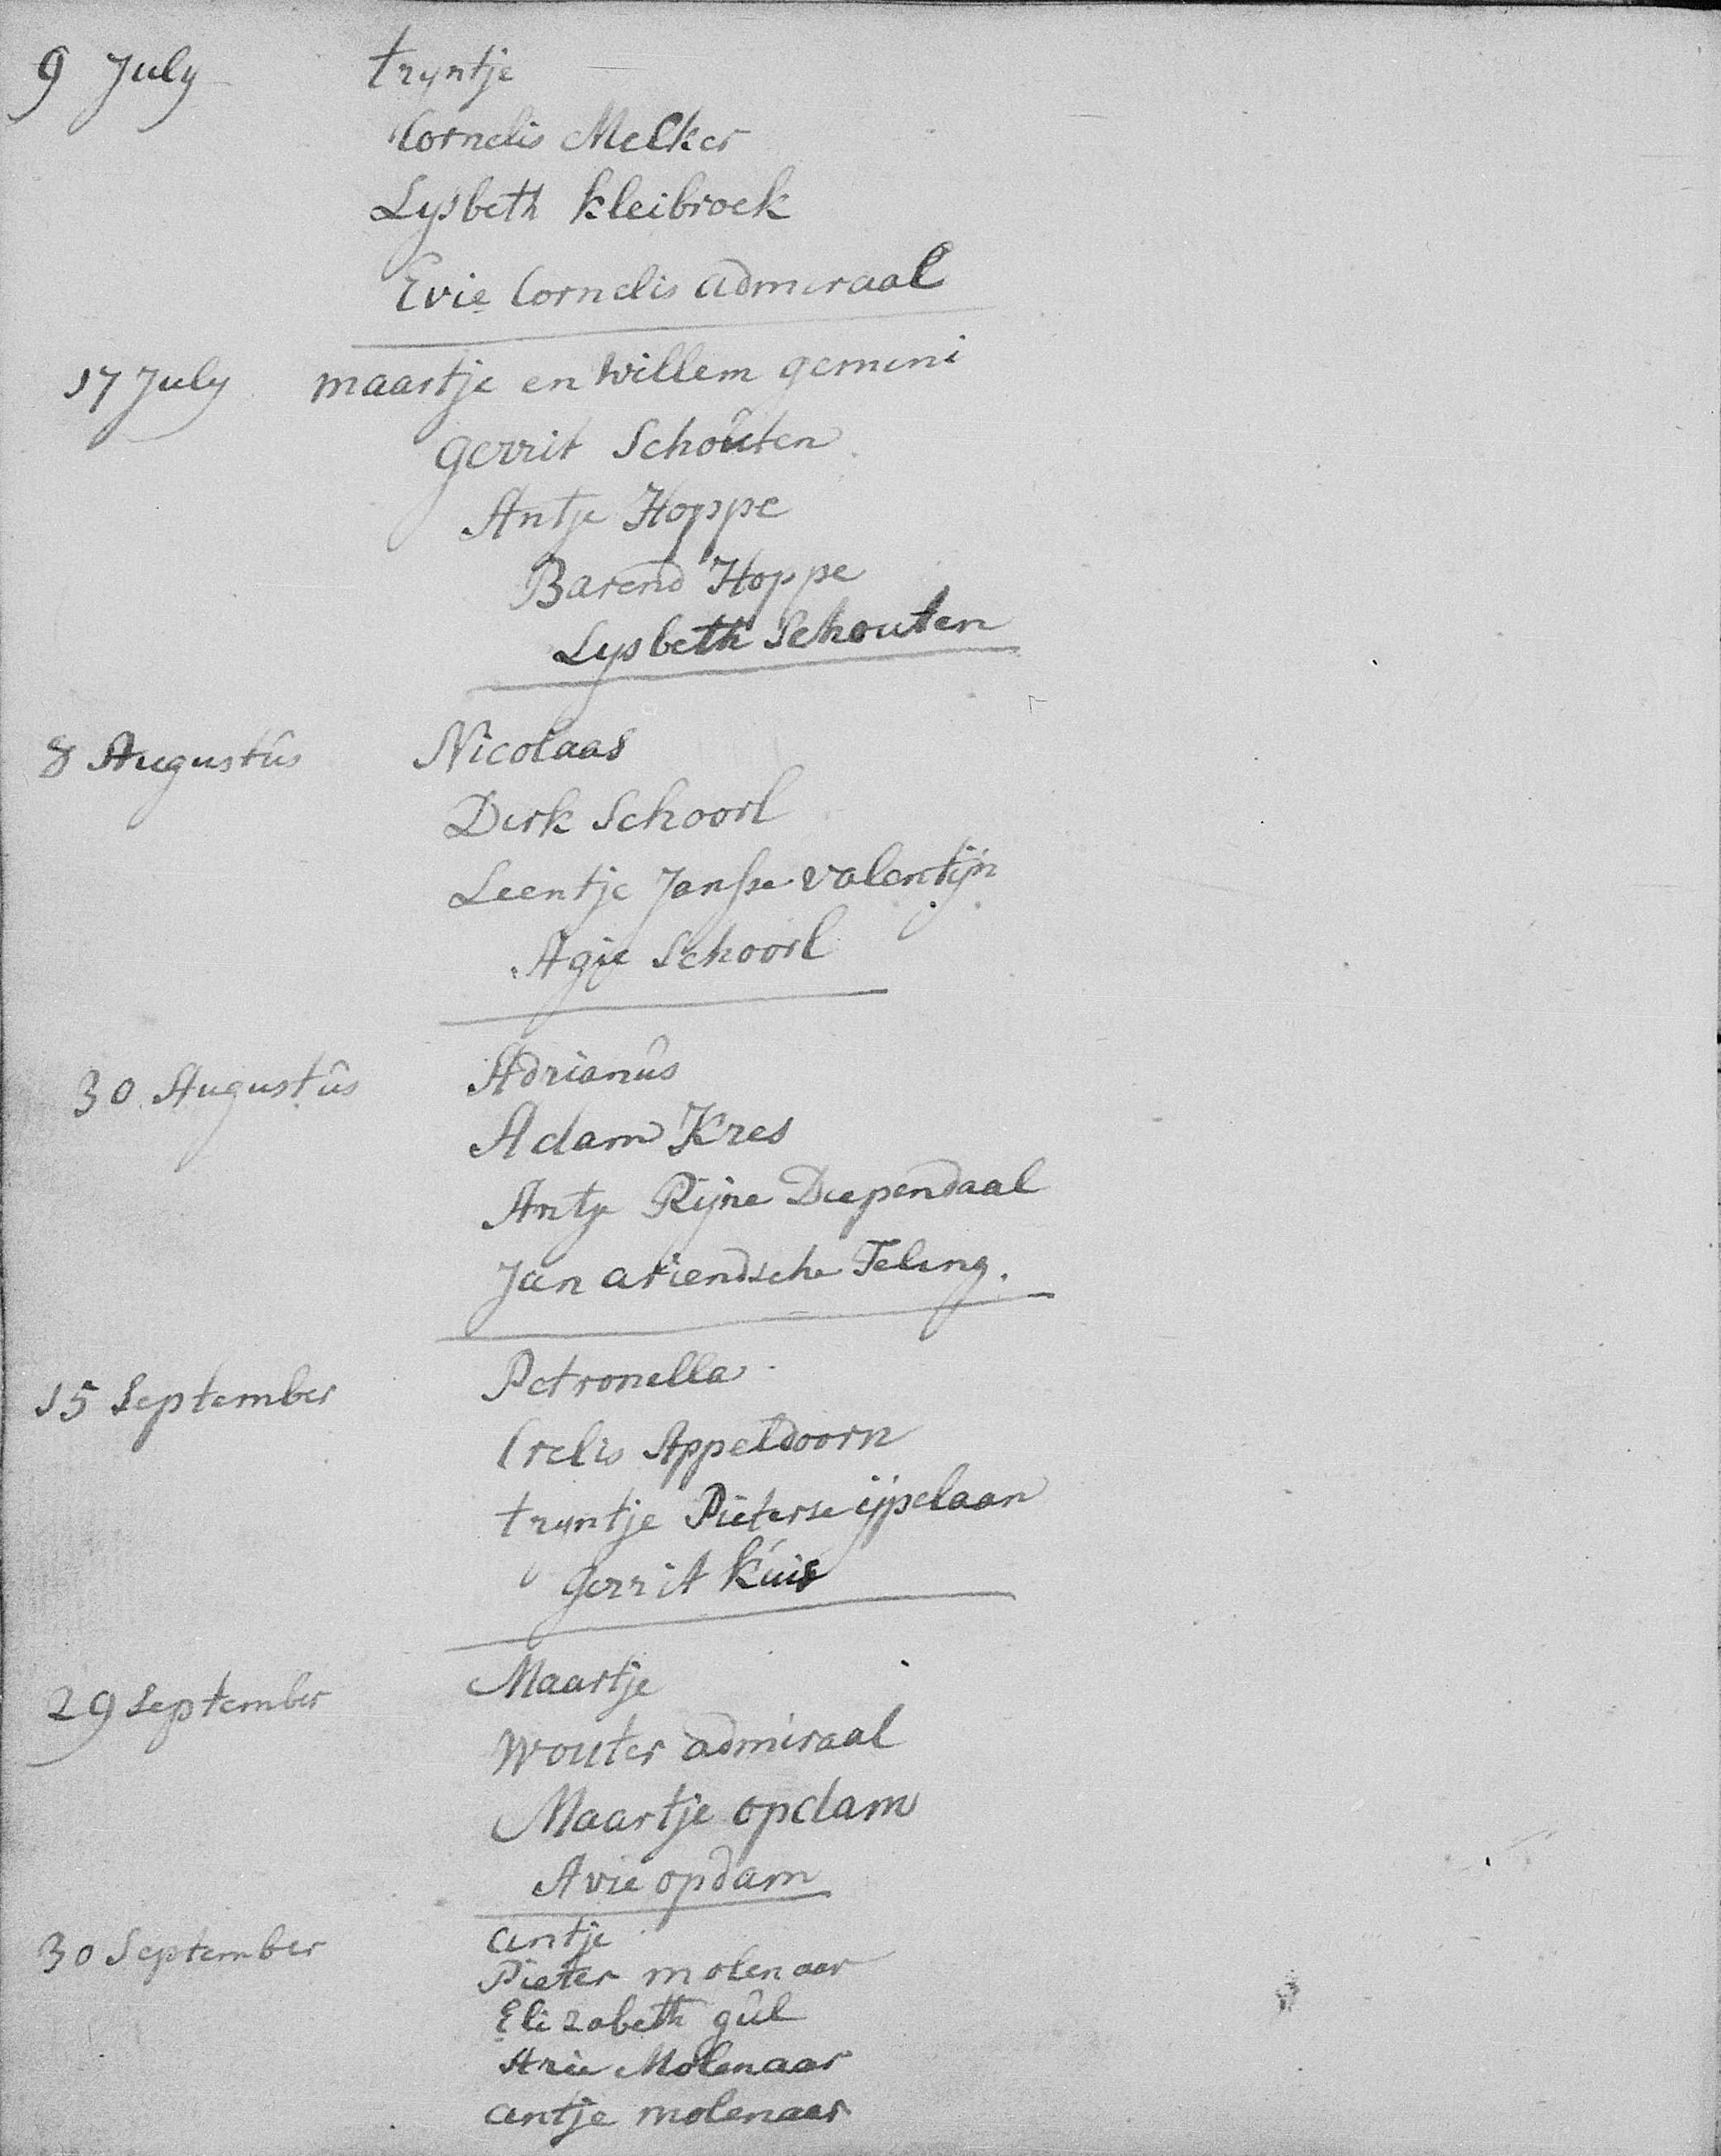 9 July tryntje
Cornelis Melker
Lysbeth kleibroek
Evie Cornelis admiraal
17 July maartje en willem gemini
gerrit Schoûten
Antje Hoppe
Barend Hoppe
Lysbeth Schouten
8 Augustûs Nicolaas
Dirk Schoorl
Leentje Janse valentijn
Agie Schoorl
30 Augustûs Adrianûs
Adam Kres
Antje Rijne Diependaal
Jan ariendsche Teling.
15 September Petronella
Crelis Appeldoorn
tryntje Pieterse ijpelaan
gerrit kuis
29 September Maartje
wouter admiraal
Maartje opdam
Avie opdam
30 September antje
Pieter molenaar
Elizabeth gûl
Arie Molenaar
antje molenaar